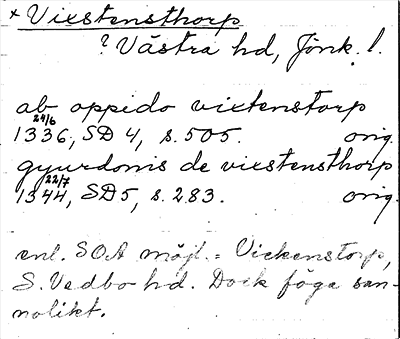 × Vixstensthorp
? Västra hd, Jönk. l.
ab oppido vixtenstorp
24/6
1336, SD 4, s. 505. orig.
gyurdonis de vixstensthorp
22/7
1344, SD5, s. 283. orig.
enl. SOA möjl. = Vickenstorp,
S. Vedbo hd. Dock föga san-
nolikt.